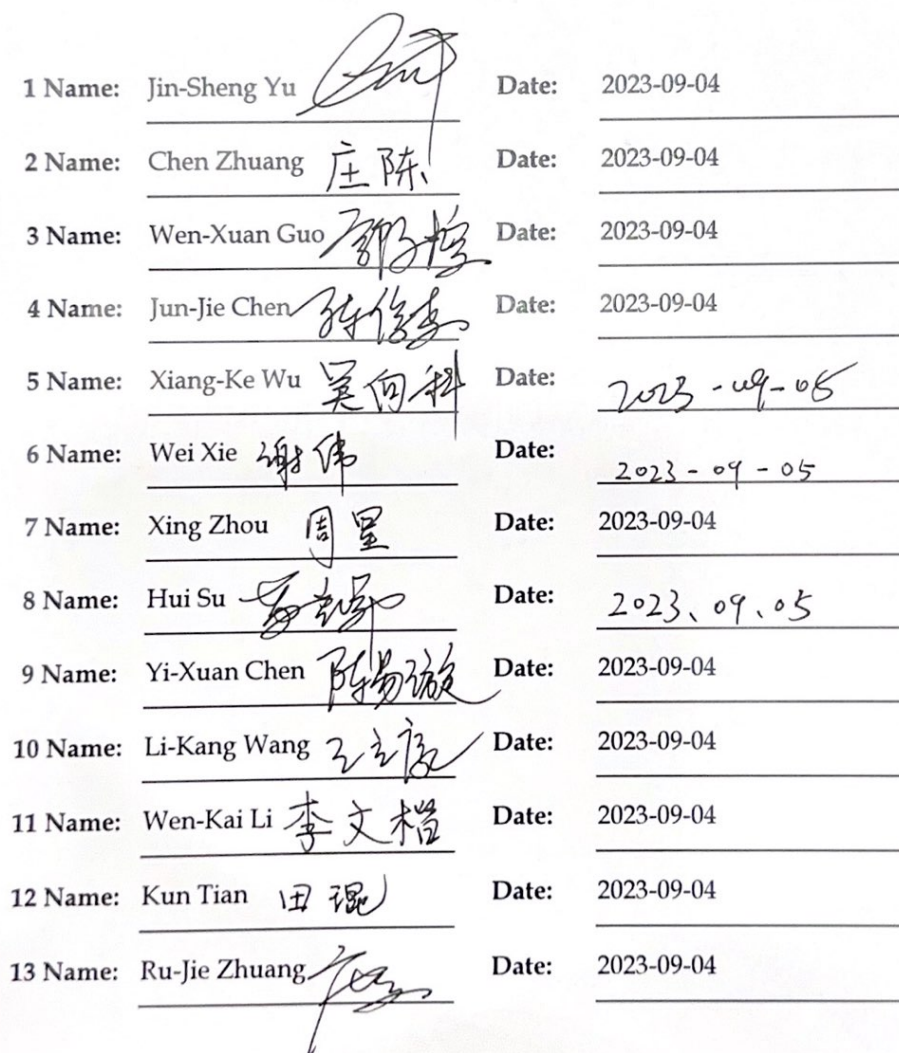 1 Name: Jin-Sheng Yu Date: 2023-09-04
2 Name: Chen Zhuang 庄陈 Date: 2023-09-04
3 Name: Wen-Xuan Guo Date: 2023-09-04
4 Name: Jun-Jie Chen 陈俊杰 Date: 2023-09-04
5 Name: Xiang-Ke Wu 吴向科 Date: 2023-09-05
6 Name: Wei Xie 谢伟 Date: 2023-09-05
7 Name: Xing Zhou 周星 Date: 2023-09-04
8 Name: Hui Su Date: 2023、09、05
9 Name: Yi-Xuan Chen 陈易璇 Date: 2023-09-04
10 Name: Li-Kang Wang 王立康 Date: 2023-09-04
11 Name: Wen-Kai Li 李文楷 Date: 2023-09-04
12 Name: Kun Tian 田琨 Date: 2023-09-04
13 Name: Ru-Jie Zhuang Date: 2023-09-04